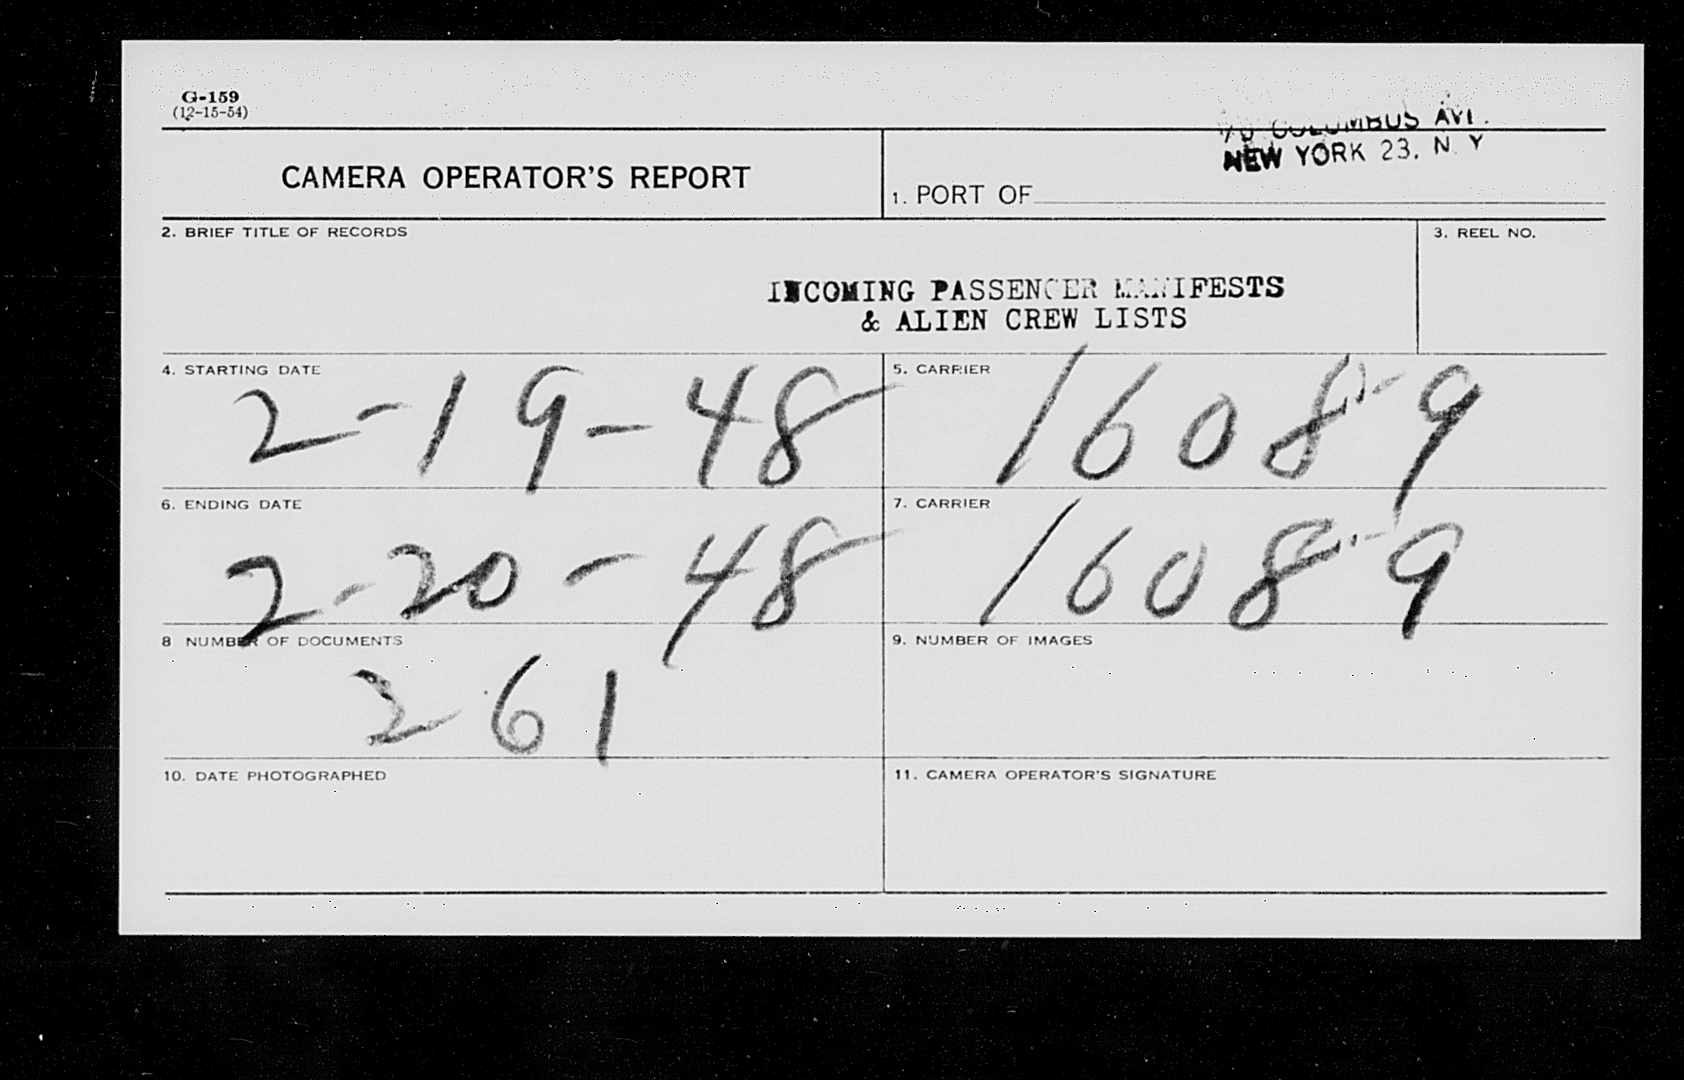 G-159
(12-15-54)
COLUMBUS AVE.
NEW YORK 23, N. Y
CAMERA OPERATOR'S REPORT
1. PORT OF
2. BRIEF TITLE OF RECORDS
3. REEL NO.
INCOMING PASSENGER MANIFESTS
& ALIEN CREW LISTS
4. STARTING DATE
2-19-48
5. CARRIER
1608-9
6. ENDING DATE
2-20-48
7. CARRIER
1608-9
8 NUMBER OF DOCUMENTS
261
9. NUMBER OF IMAGES
10. DATE PHOTOGRAPHED
11. CAMERA OPERATOR'S SIGNATURE